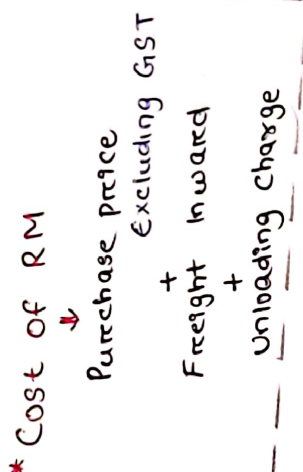 * Cost of RM
↓
Purchase price
Excluding GST
+
Freight Inward
+
Unloading charge